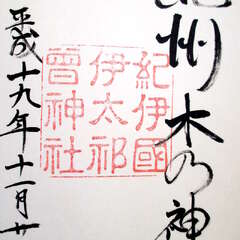 紀州木の神
紀伊國
伊太祁
曽神社
平成十九年十一月廿